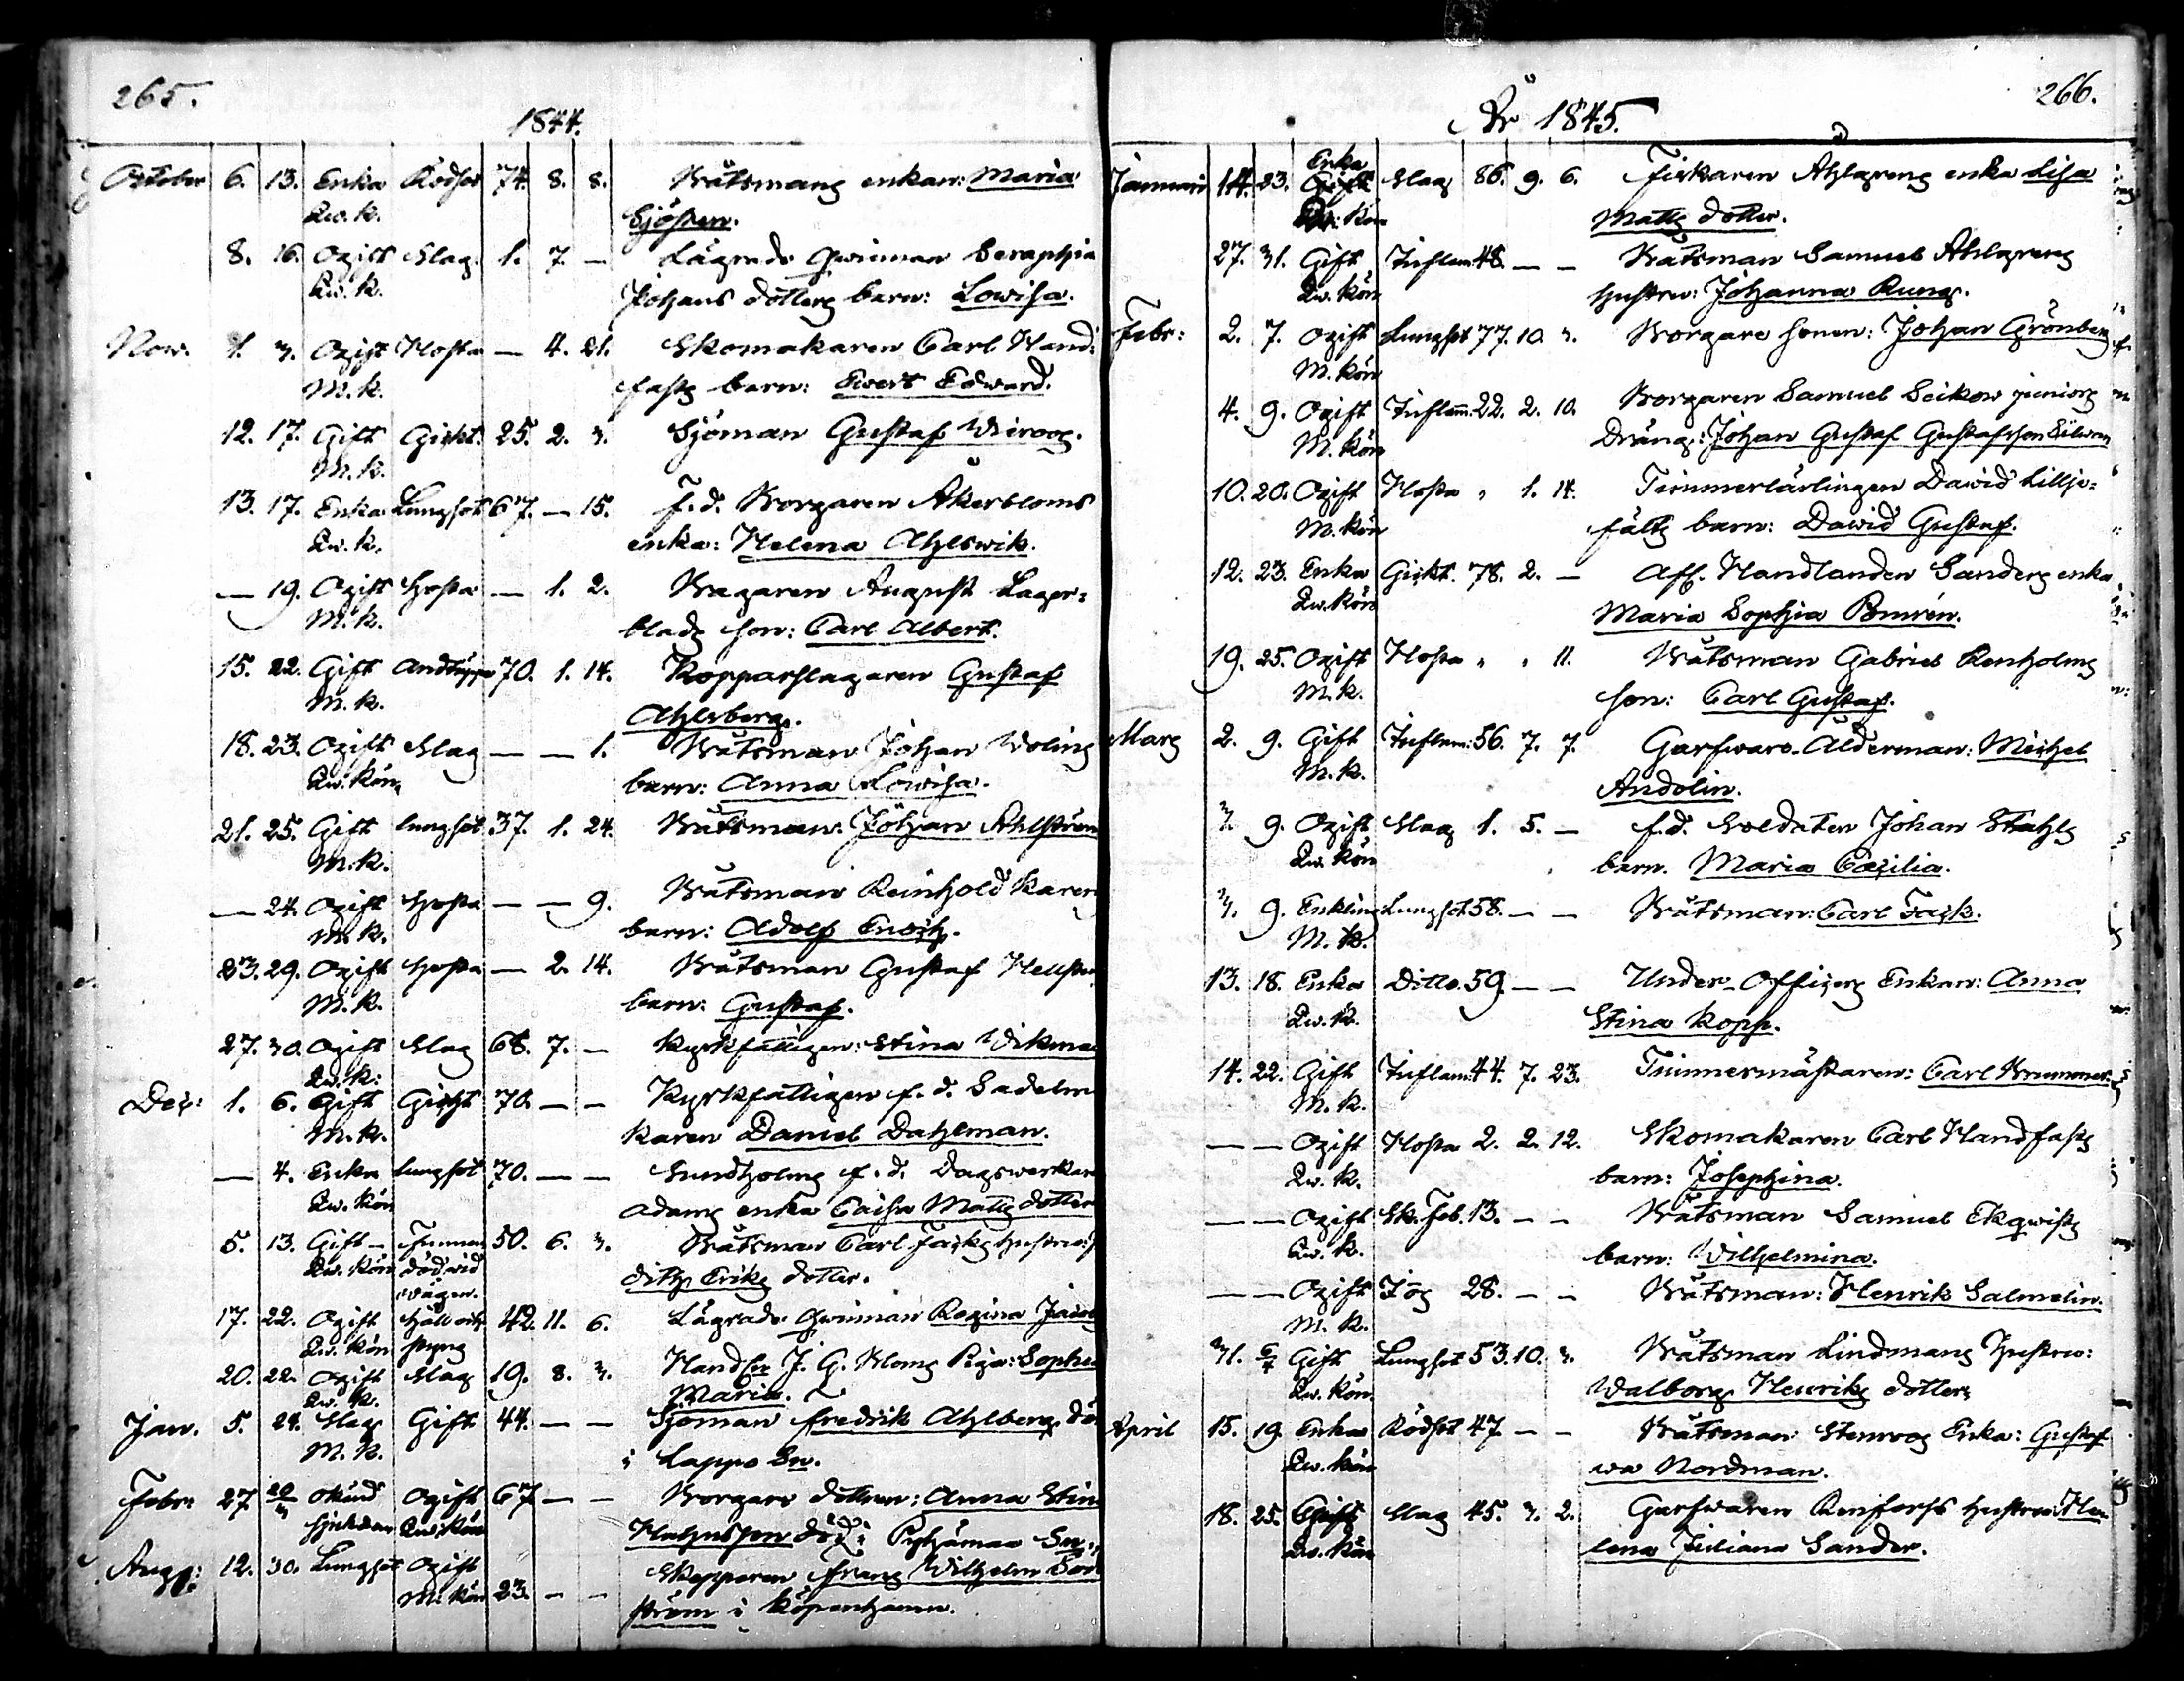 265.
1844.
October 6. 13. Enka Rödsot 74. 8. 8. Båtsmans enkan: Maria
Qw. k. Sjösten.
8. 16. Ogift Slag. 1. 7. — Lägrade qwinnan Seraphia
Qw. k. Johans dotters barn: Lowisa.
Now. 1. 3. Ogift Hosta — 4. 21. Skomakaren Carl Hand-
M. k. fasts barn: Evert Edward.
12. 17. Gift Gickt. 25. 2. 3. Sjöman Gustaf Wiroos.
M. k.
13. 17. Enka Lungsot 67. — 15. F. d. Borgaren Åkerbloms
Qw. k. enka: Helena Ahlswik.
— 19. Ogift Hosta — 1. 2. Bagaren August Lager-
M. k. blads son: Carl Albert.
15. 22. Gift Andtäppa 70. 1. 14. Kopparslagaren Gustaf
M. k. Ahlberg.
18. 23. Ogift Slag — — 1. Båtsman Johan Wolins
Qw. kön. barn: Anna Lowisa.
21. 25. Gift lungsot 37. 1. 24. Båtsman: Johan Ahlström
M. k.
— 24. Ogift Hosta — — 9. Båtsman Reinhold Karens
M. k. barn: Adolf Enoch.
23. 29. Ogift Hosta — 2. 14. Båtsman Gustaf
M. k. barn: Gustaf.
27. 30. Ogift Slag 68. 7. — Kyrkfattigen: Stina Wikman
Qw. k.
Dec: 1. 6. Gift Gickt 70. — — Kyrkfattigen f. d. Sadelma
M. k. karen Daniel Dahlman.
— 4. Enka lungsot 70. — — Sundholms f. d. Dagswerkare
Qw. kön Adams enka Caisa Matts dotter
5. 13. Gift — Funnen 50. 6. 3. Båtsman Carl Facks hustru:
Qw. kön död wid dith Eriks dotter.
wägen.
17. 22. Ogift Håll och 42. 11. 6. Lägrade Qwinnan Regina Jacobs
Qw. kön styng
20. 22. Ogift Slag 19. 8. 3. Handlr J. G. Bloms Piga: Sophia
Qw. k. Maria.
Jan. 5. 24. Slag Gift 44. — — Sjöman Fredrik Ahlberg, död
M. k. i Lappo Sn.
Febr: 27 okänd Ogift 67 — — Borgare dottren: Anna Stina
sjukdom Qw. kön Hahnsson död i Pyhämaa Sn.
Aug: 12. 30. Lungsot Ogift Skepparen Frans Wilhelm
M. kön 23. — — ström i Köpenhamn.
266.
År 1845.
Januari 14. 23. Enka Slag 86. 9. 6. Fiskaren Ahlgrens enka Lisa
Qw: kön Matts dotter.
27. 31. Gift Inflam: 48. — — Båtsman Samuel Ahlgrens
Qw. kön hustru: Johanna Rung.
Febr: 2. 7. Ogift Lungsot 77. 10. 3. Borgare sonen: Johan Grönberg
M. kön
4. 9. Ogift Inflam: 22. 2. 10. Borgaren Samuel Seikow juniors
M. kön Dräng: Johan Gustaf Gustafsson
10. 20. Ogift Hosta " 1. 14. Timmerlärlingen Dawid Lillje-
M. kön fälts barn: Dawid Gustaf.
12. 23. Enka Gickt. 78. 2. — Afl. Handlanden Sanders enka
Qw. kön Maria Sophia Bourén.
19. 25. Ogift Hosta " " 11. Båtsman Gabriel Renholms
M. k. son: Carl Gustaf.
Mars 2. 9. Gift Inflam: 56. 7. 7. Garfware-Ålderman: Michel
M. k. Andelin.
3. 9. Ogift Slag 1. 5. — f. d. Soldaten Johan Stahls
Qw. kön barn. Maria Cæcilia.
3. 9. Enkling Lungsot 58. — — Båtsman: Carl Fack.
M. k.
13. 18. Enka Ditto. 59. — — Under-Officers Enkan: Anna
Qw. k. Stina Kopp.
14. 22. Gift Inflam: 44. 7. 23. Timmermästaren: Carl Brummer.
M. k.
— — Ogift Hosta 2. 2. 12. Skomakaren Carl Handfasts
Qw. k. barn: Josephina.
— — Ogift Sk. Feb. 13. — — Båtsman Samuel Ekqwists
Qw. k. barn: Wilhelmina.
— — Ogift 28. — — Båtsman: Henrik Salmelin.
M. k.
31. 6/4 Gift Lungsot 53. 10. 3. Båtsman Lindmans Hustru:
Qw. kön. Walborg Henriks dotter.
April 15. 19. Enka Rödsot 47 — — Båtsman Stenroos Enka: Gustaf
Qw. kön wa Nordman.
18. 25. Gift Slag 45. 3. 2. Garfwaren Renfors hustru: He-
Qw. kön lena Juliana Sander.